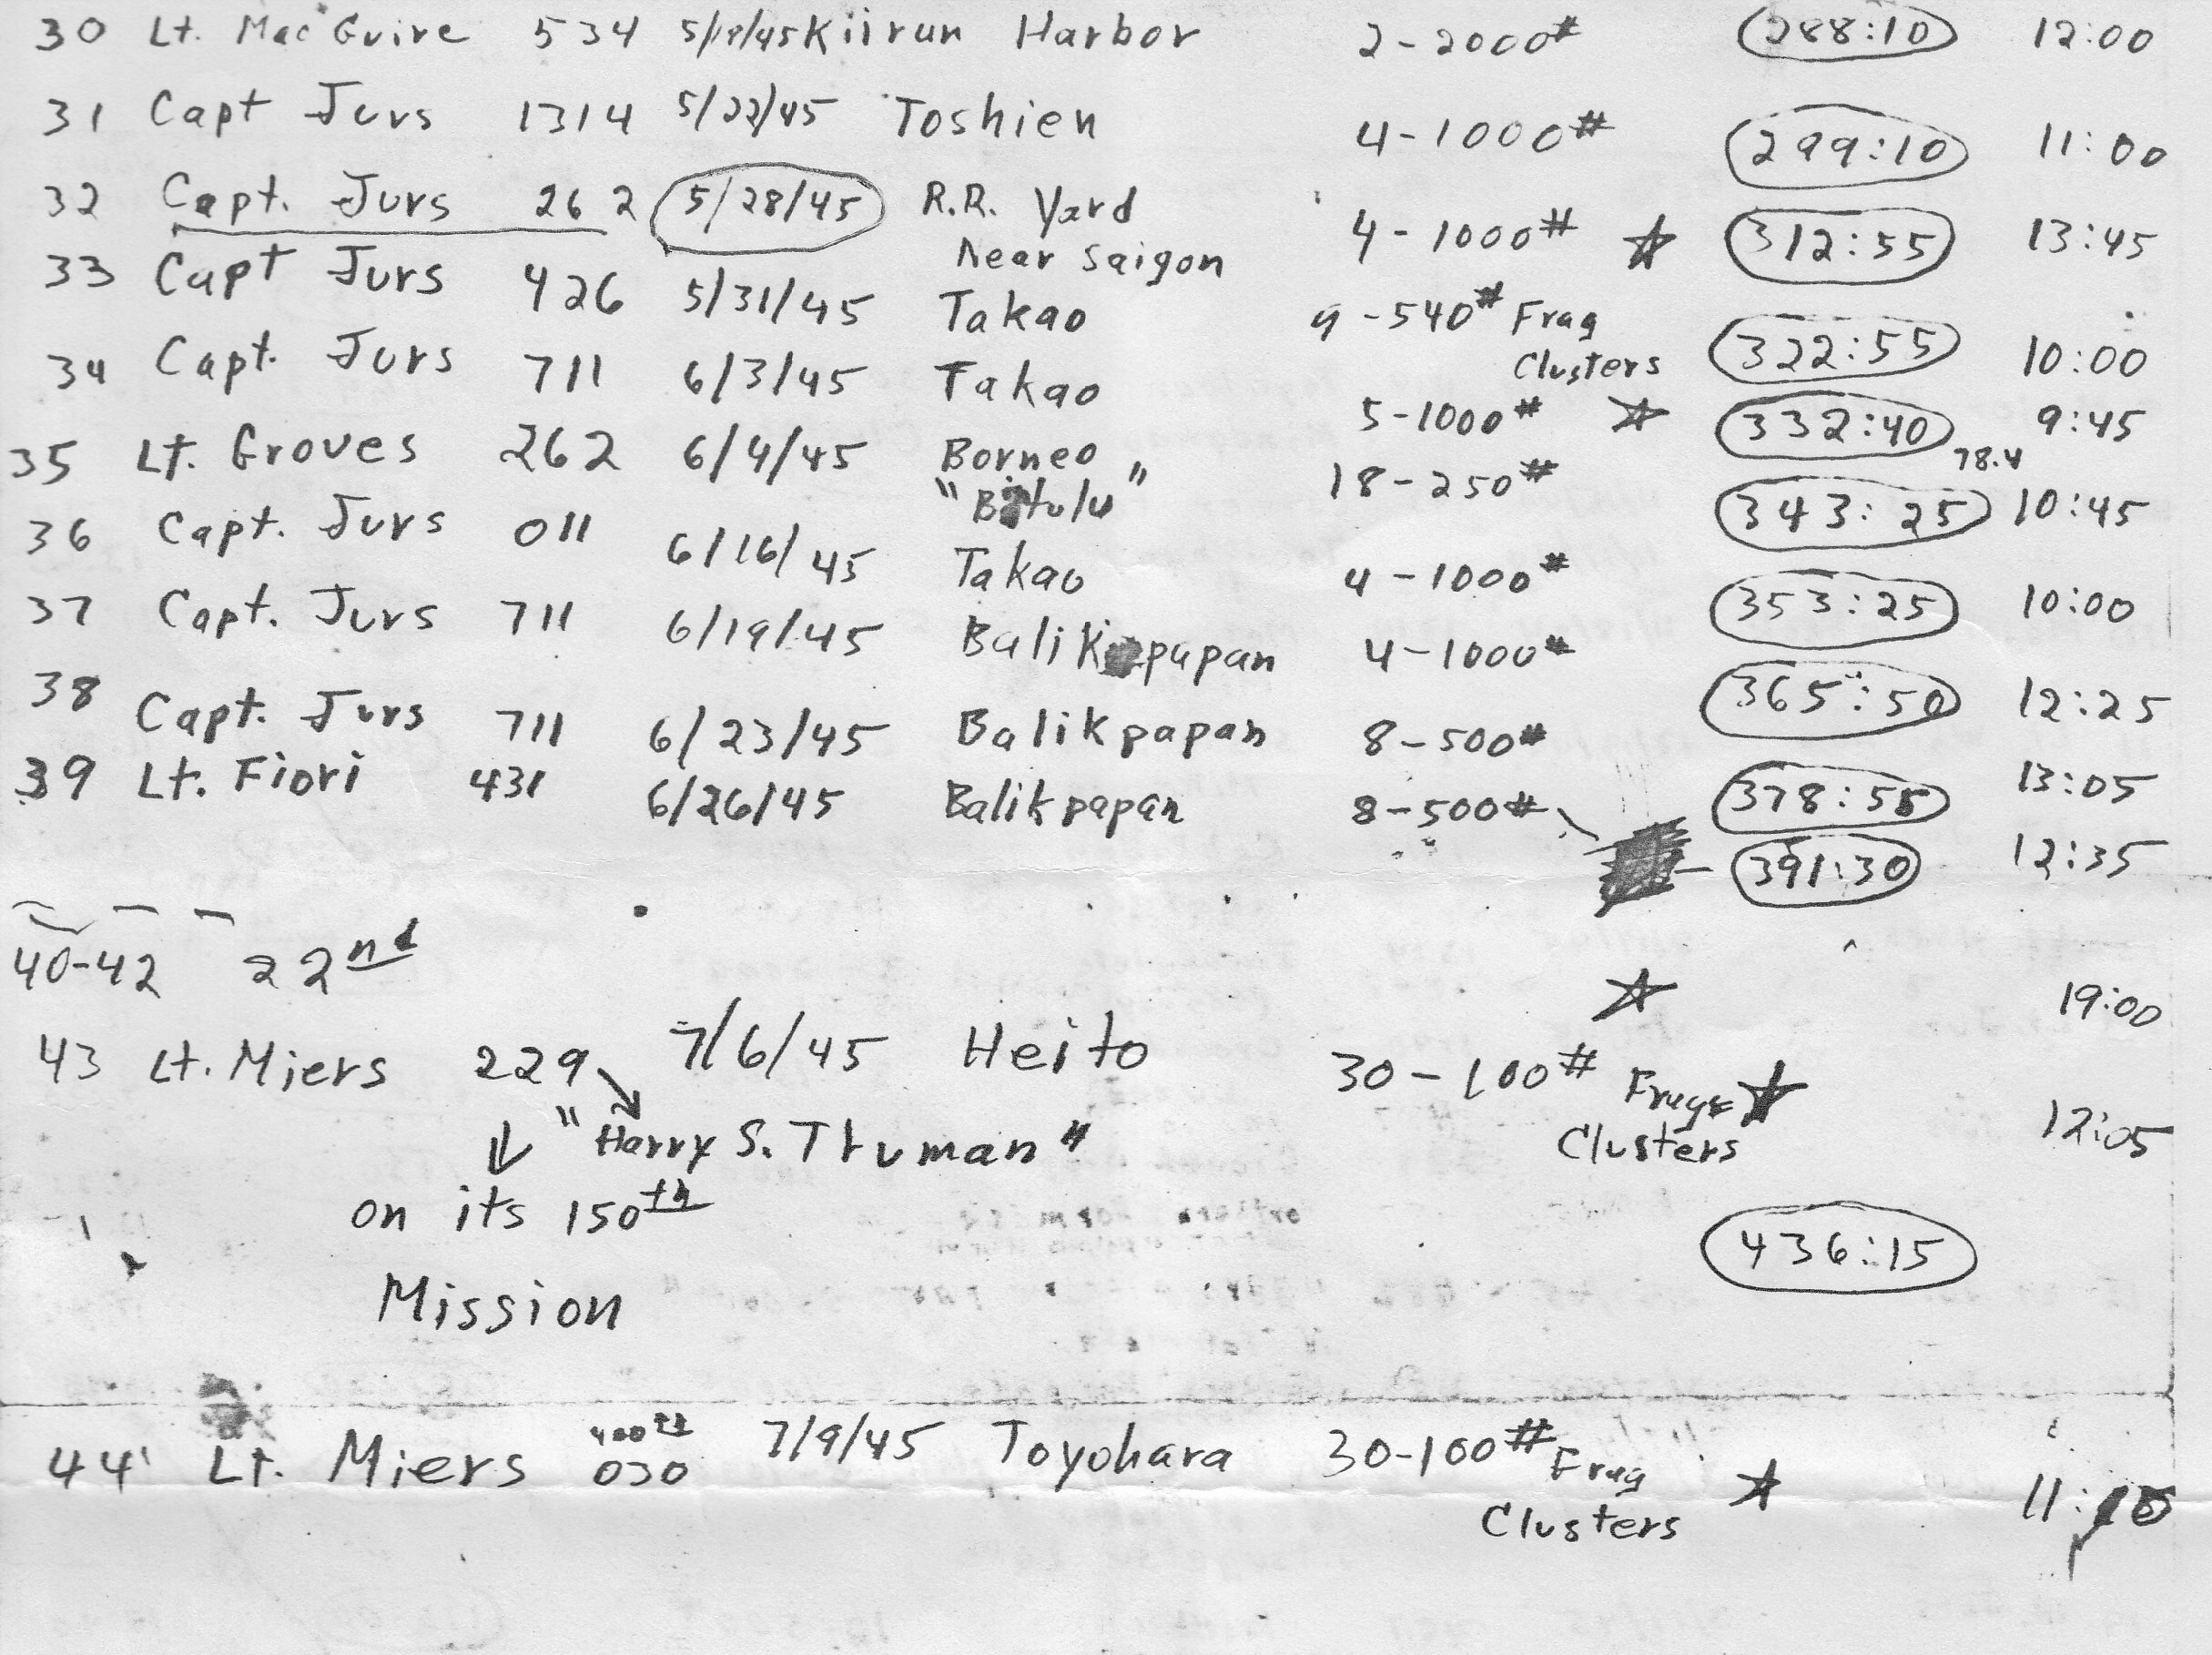 30 Lt. MacGuire 534 5/18/45 Kiirun Harbor 2-2000# 288:10 12:00
31 Capt Jurs 1314 5/22/45 Toshien 4-1000# 299:10 11:00
32 Capt. Jurs 262 5/28/45 R.R. Yard 4-1000# ☆ 312:55 13:45
Near Saigon
33 Capt Jurs 426 5/31/45 Takao 9-540# Frag 322:55 10:00
Clusters
34 Capt. Jurs 711 6/3/45 Takao 5-1000# ☆ 332:40 9:45
78.4
35 Lt. Groves 262 6/4/45 Borneo 18-250# 343:25 10:45
"Bitulu"
36 Capt. Jurs 011 6/16/45 Takao 4-1000# 353:25 10:00
37 Capt. Jurs 711 6/19/45 Balikpapan 4-1000# 365:50 12:25
38 Capt. Jurs 711 6/23/45 Balikpapan 8-500# 378:55 13:05
39 Lt. Fiori 431 6/26/45 Balikpapan 8-500# 391:30 12:35
40-42 22nd ☆ 19:00
43 Lt. Miers 229 7/6/45 Heito 30-100# Frags ☆ 12:05
"Harry S. Truman" Clusters
on its 150th 436:15
Mission
400th
44 Lt. Miers 030 7/9/45 Toyohara 30-100# Frag ☆ 11:10
Clusters